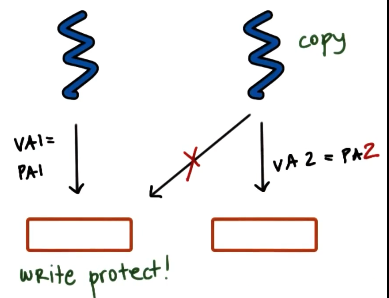 copy
VA1=
PA1
VA2 = PA2
write protect!